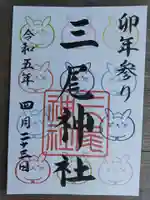 卯年参り
三尾神社
令和五年 四月二十三日